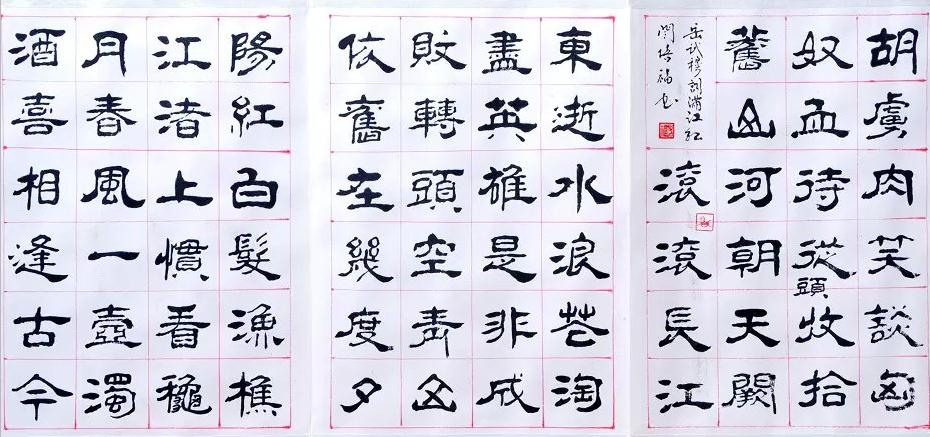 胡虜肉笑談匈
奴血待從頭收拾
舊山河朝天闕
岳武穆詞滿江紅
培福书
滾滾長江
東逝水浪花淘
盡英雄是非成
敗轉頭空青山
依舊在幾度夕
陽紅白髮漁樵
江渚上慣看穐
月春風一壺濁
酒喜相逢古今